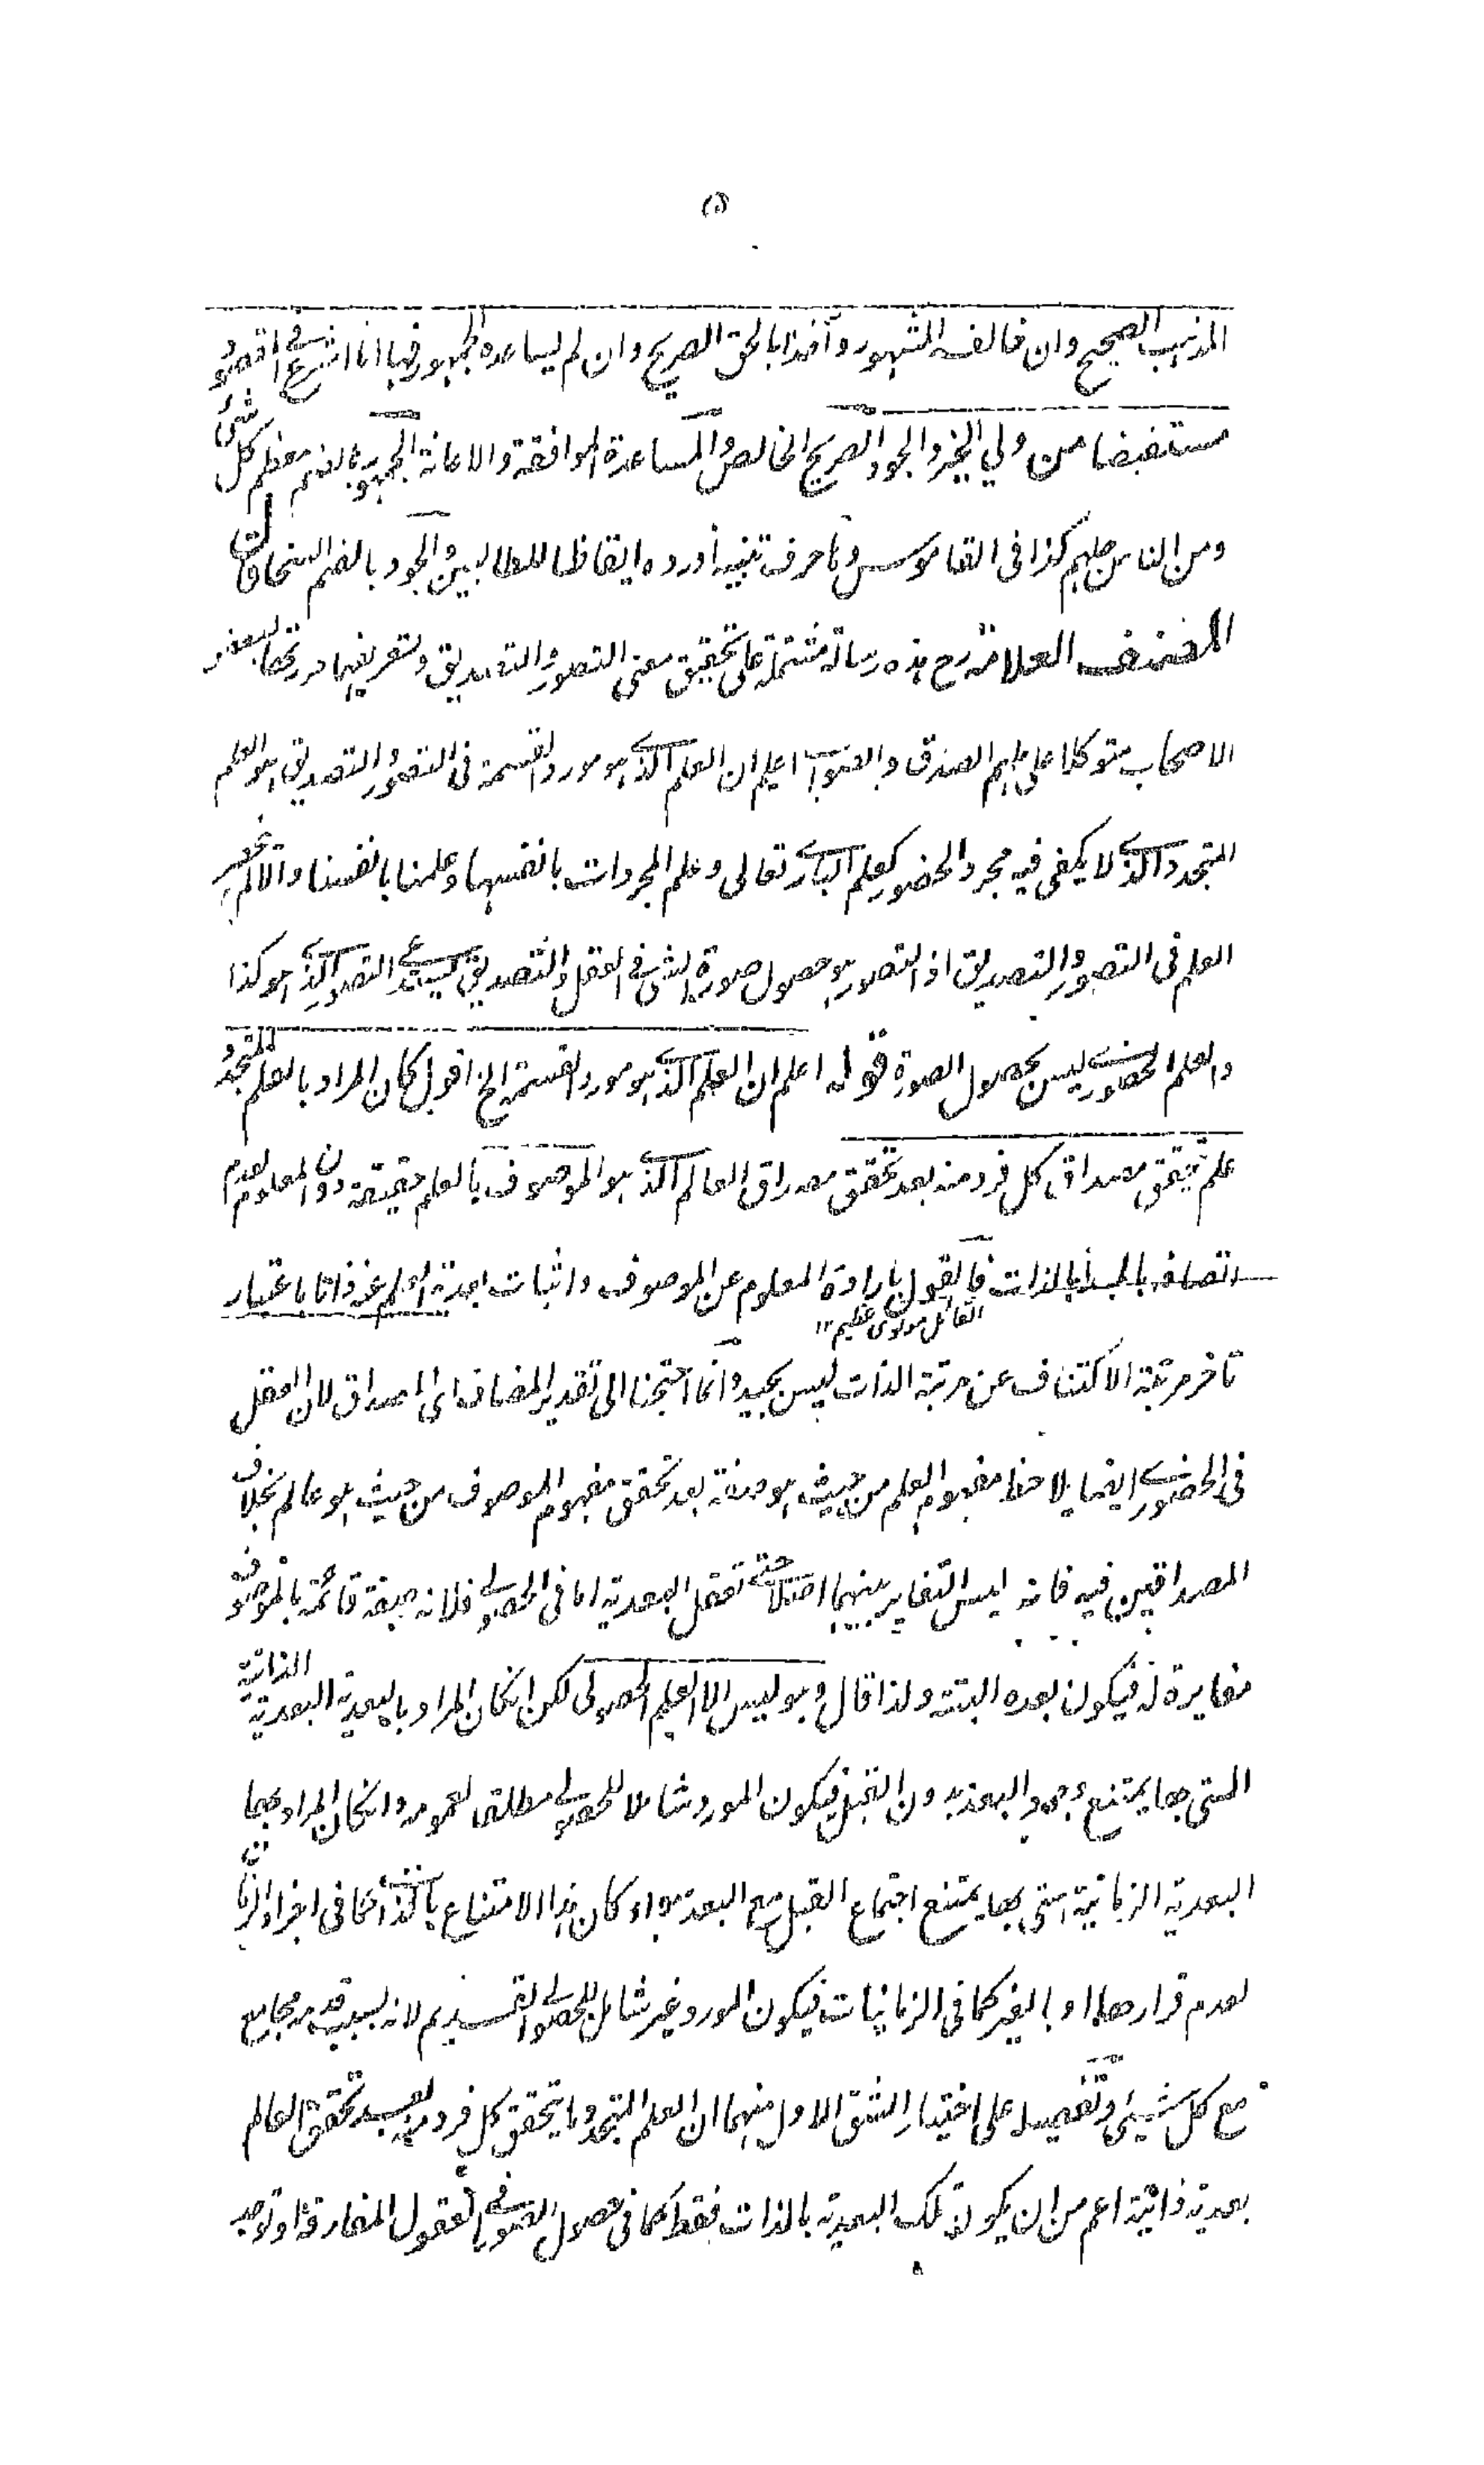 (۵)
المذهب الصحيح وان خالفه المشهور وآخذا بالحق الصريح وان لم يساعده الجمهور فها انا اشرع في المقصود
مستفيضا من ولي الخير والجود الصريح الخالص والمساعدة الموافقة والاعانة الجمهور بالضم معظم كل شئ
ومن الناس جلهم كذا في القاموس وها حرف تنبيه أورده ايقاظا للطالبين والجود بالضم السخاء قال
المصنف العلامة رح هذه رسالة مشتملة على تحقيق معنى التصور والتصديق وتعريفهما حررتها لبعض
الاصحاب متوكلا على ملهم الصدق والصواب اعلم ان العلم الذي هو مورد القسمة في التصور والتصديق هو العلم
المتجدد الذي لا يكفي فيه مجرد الحضور كعلم الباري تعالى وعلم المجردات بانفسها وعلمنا بانفسنا والا لم ينحصر
العلم في التصور والتصديق اذ التصور هو حصول صورة الشئ في العقل والتصديق يستدعي التصور الذي هو كذا
والعلم الحضوري ليس بحصول الصورة قوله اعلم ان العلم الذي هو مورد القسمة الخ اقول كان المراد بالعلم المتجدد
علم يتحقق مصداق كل فرد منه بعد تحقق مصداق العالم الذي هو الموصوف بالعلم حقيقة دون المعلوم لعدم
اتصافه بالمبدأ بالذات فالقول بارادة المعلوم عن الموصوف واثبات بعدية العلم عنه ذاتا باعتبار
القائل مولوي عظيم ۱۲
تأخر مرتبة الاكتناف عن مرتبة الذات ليس بجيد وانما احتجنا الى تقدير المضاف اي المصداق لان العقل
في الحضوري ايضا يلاحظ مفهوم العلم من حيث هو صفة بعد تحقق مفهوم الموصوف من حيث هو عالم بخلاف
المصداقين فيه فانه ليس التغاير بينهما اصلا حتى تعقل البعدية اما في الحصولي فلانه صفة قائمة بالموصوف
مغايرة له فيكون بعده البتة ولذا قال وهو ليس الا العلم الحصولي لكن ان كان المراد بالبعدية البعدية الذاتية
التي بها يمتنع وجود البعد بدون القبل فيكون المورد شاملا للحصولي مطلقا لعمومه وان كان المراد بها
البعدية الزمانية التي بها يمتنع اجتماع القبل مع البعد سواء كان هذا الامتناع بالذات كما في اجزاء الزمان
لعدم قرارها او بالغير كما في الزمانيات فيكون المورد غير شامل للحصولي القديم لانه بسبب قدمه مجامع
مع كل شيئ وتفصيله على اختيار الشق الاول منهما ان العلم المتجدد ما يتحقق كل فرد منه بعد تحقق العالم
بعدية ذاتية اعم من ان يكون تلك البعدية بالذات فقط كما في حصول الصور في العقول المفارقة او توجد